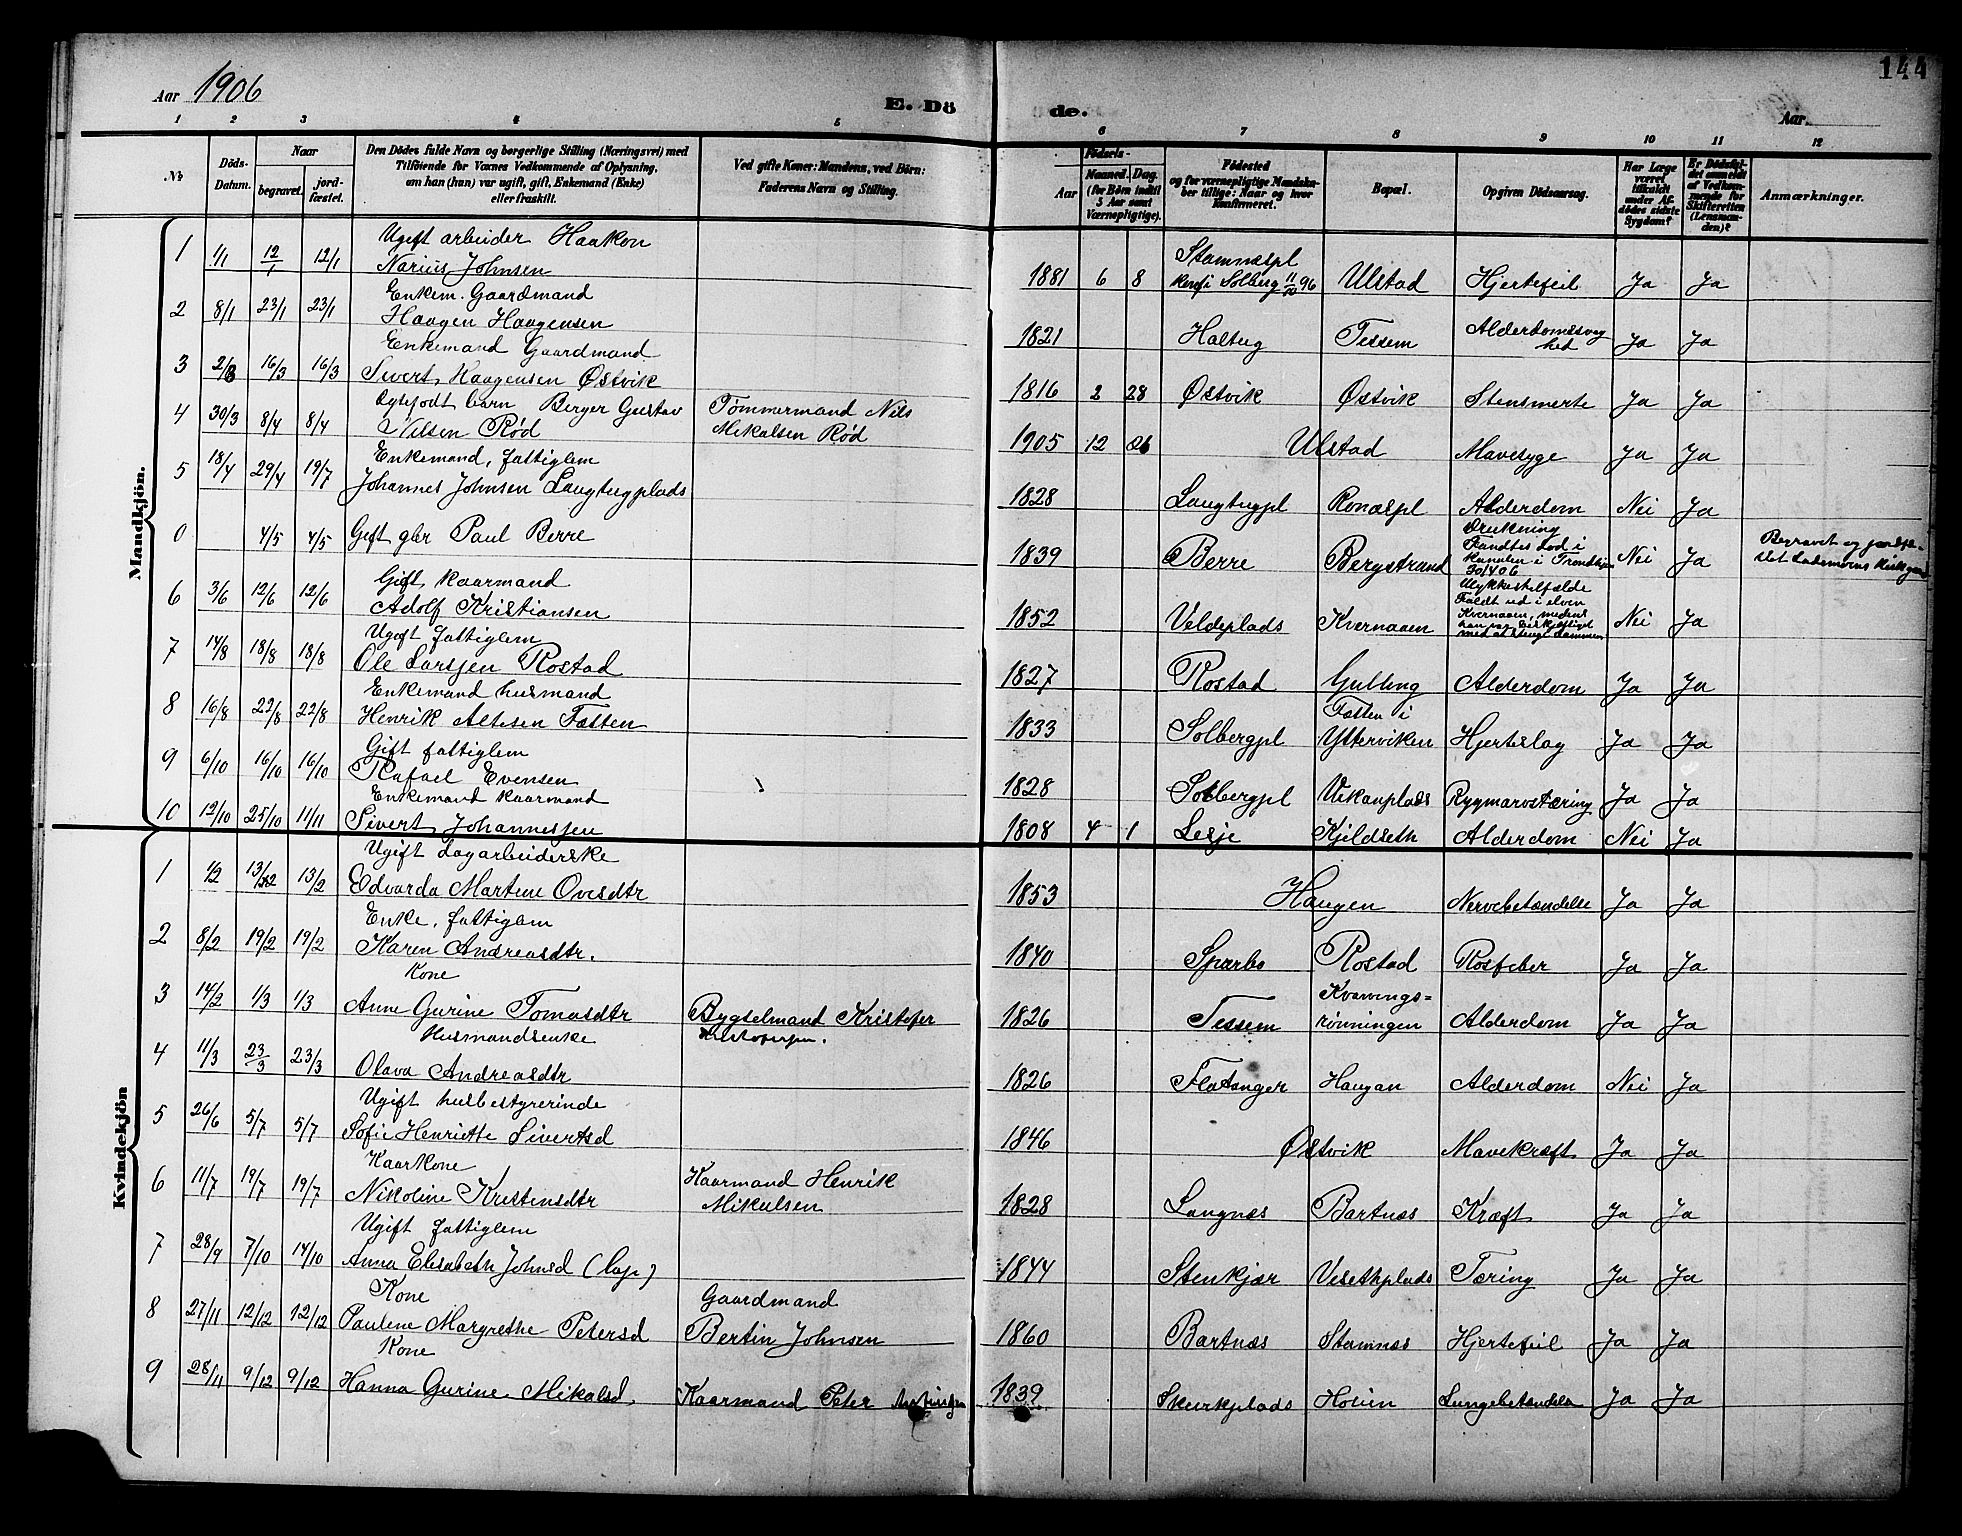 144
Aar 1906
E. Dö
de.
Aar
1 2 3 4 5 6 7 8 9 10 11 12
No
Döds-
Datum.
Naar
begravet.
jord-
fæstet.
Den Dödes fulde Navn og borgerlige Stilling (Næringsvei) med
Tilföiende for Voxnes Vedkommende af Oplysning,
om han (hun) var ugift, gift, Enkemand (Enke)
eller fraskilt.
Ved gifte Koner: Mandens, ved Börn:
Faderens Navn og Stilling.
Födsels-
Aar
Maaned.
Dag.
(for Börn indtil
5 Aar samt
Værnepligtige).
Födested
og for værnepligtige Mandskaber
tillige: Naar og hvor
konfirmeret.
Bopæl.
Opgiven Dödsaarsag.
Har Læge
været
tilkaldt
under Afdödes
sidste
Sygdom?
Er Dödsfaldet
anmeldt
af Vedkommende
for
Skifteretten
(Lensmanden)?
Anmærkninger.
Mandkjön.
1 1/1 12/1 12/1 Ugift arbeider Haakon
Narius Johnsen 1881 6 8 Stamnæspl
konfi Solberg 11/10 96 Ulstad Hjertefeil Ja Ja
2 8/1 23/1 23/1 Enkem. Gaardmand
Haagen Haagensen 1821 Haltug Tessem Alderdomssvag
hed Ja Ja
3 2/3 16/3 16/3 Enkemand Gaardmand
Sivert Haagensen Østvik 1816 2 28 Østvik Østvik Stensmerte Ja Ja
4 30/3 8/4 8/4 Egtefødt barn Berger Gustav
Nilsen Rød Tømmermand Nils
Mikalsen Rød 1905 12 26 Ulstad Mavesyge Ja Ja
5 18/4 29/4 19/7 Enkemand, fattiglem
Johannes Johnsen Langtugplads 1828 Langtugpl Ronæspl Alderdom Nei Ja
0 4/5 4/5 Gift gbr Paul Berre 1839 Berre Bergstrand Drukning
Fandtes død i
Kanalen i Trondhjem
30/4 06 Nei Ja Begravet og jordfæ-
stet Lademoens Kirkgaard
6 3/6 12/6 12/6 Gift kaarmand
Adolf Kristiansen 1852 Veldeplads Kvernaaen Ulykkestilfælde
Faldt ud i elven
Kvernaaen, medens
han var beskjeftiget
med at stenge dammen Nei Ja
7 14/8 18/8 18/8 Ugift fattiglem
Ole Larsen Rostad 1827 Rostad Gulling Alderdom Ja Ja
8 16/8 22/8 22/8 Enkemand husmand
Henrik Altesen Fætten 1833 Solbergpl Fætten i
Ytterviken Hjerteslag Ja Ja
9 6/10 16/10 16/10 Gift fattiglem
Rafael Evensen 1828 Solbergpl Vikanplads Rygmarvstæring Ja Ja
10 12/10 25/10 11/11 Enkemand kaarmand
Sivert Johannessen 1808 4 1 Lesje Kjeldseth Alderdom Nei Ja
Kvindekjön
1 1/2 13/2 13/2 Ugift dagarbeiderske
Edvarda Martine Ovesdtr 1853 Haugen Nervebetændelse Ja Ja
2 8/2 19/2 19/2 Enke, fattiglem
Karen Andreasdtr. 1840 Sparbo Rostad Rosfeber Ja Ja
3 14/2 1/3 1/3 Kone
Anne Gurine Tomasdtr Bygselmand Kristofer
Kristofersen. 1826 Tessem Kvarvings=
rønningen Alderdom Ja Ja
4 11/3 23/3 23/3 Husmandsenke
Olava Andreasdtr 1826 Flatanger Haugan Alderdom Nei Ja
5 26/6 5/7 5/7 Ugift husbestyrerinde
Sofie Henriette Sivertsd 1846 Østvik Mavekræft Ja Ja
6 11/7 19/7 19/7 Kaarkone
Nikoline Kristensdtr Kaarmand Henrik
Mikalsen 1828 Langnæs Bartnæs Kræft Ja Ja
7 28/9 7/10 14/10 Ugift fattiglem
Anna Elisabeth Johnsd (Lap) 1844 Stenkjær Vesethplads Tæring Ja Ja
8 27/11 12/12 12/12 Kone
Pauline Margrethe Petersd Gaardmand
Bertin Johnsen 1860 Bartnæs Stamnæs Hjertefeil Ja Ja
9 28/11 9/12 9/12 Kone
Hanna Gurine Mikalsd. Kaarmand Peter 1839 Skurkplads Holien Lungebetændelse Ja Ja